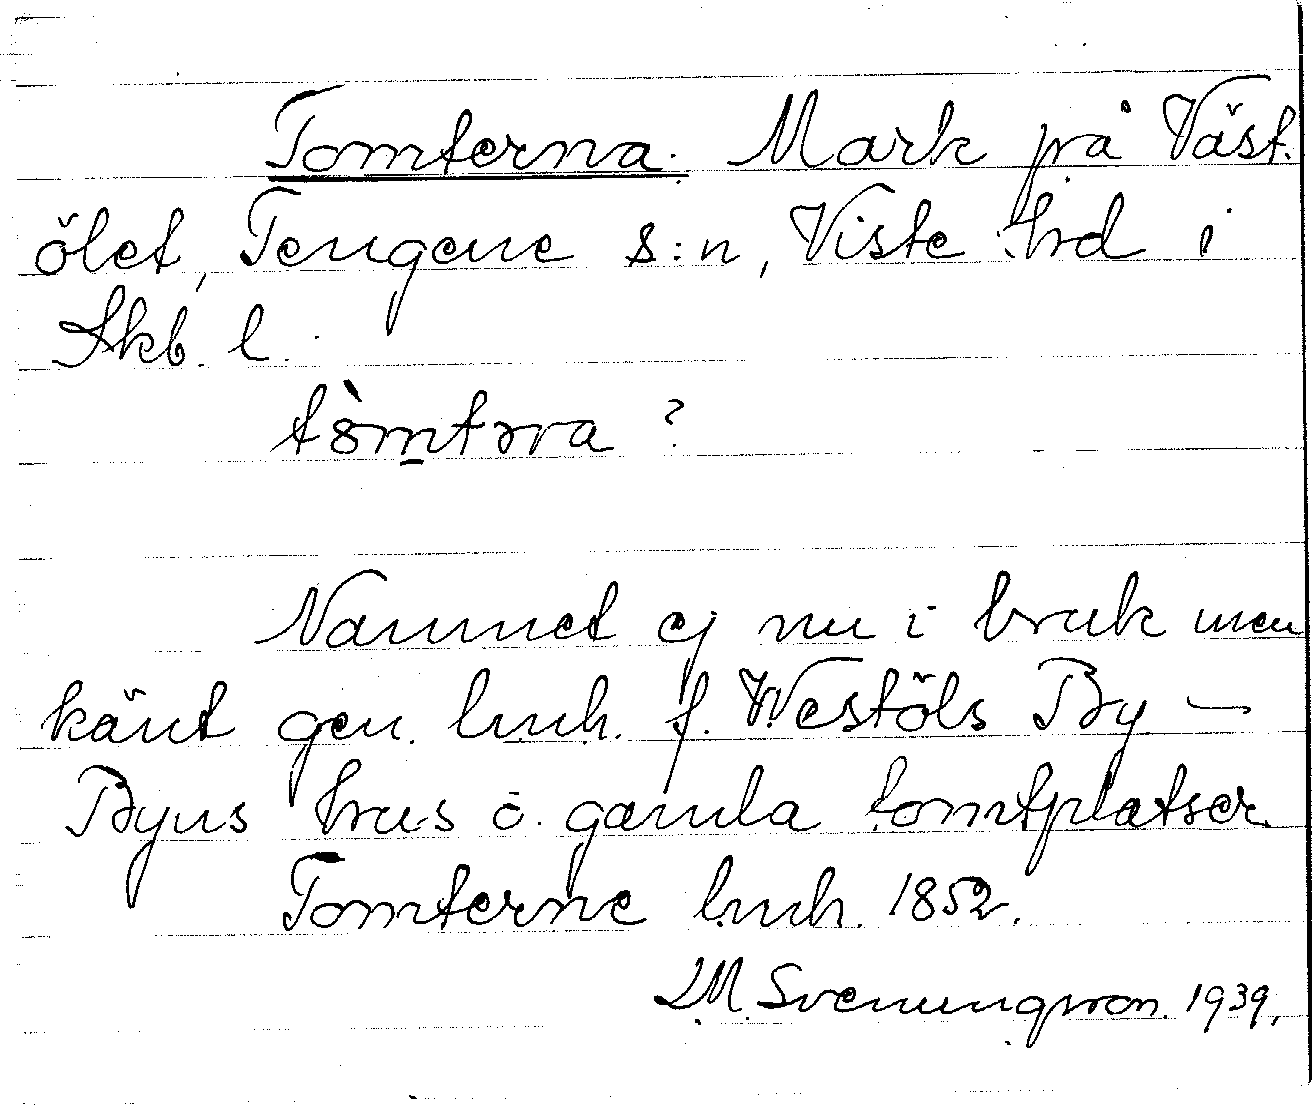 Tomterna. Mark på Väst.
ölet, Tengene s:n, Viste hrd i
Skb. l.
tòmtɔrna ?
Namnet ej nu i bruk men
känt gen. lmh. f. Westöls By –
Byns hus o. gamla tomtplatser.
Tomterne lmh. 1852.
L.M. Svenungsson. 1939.